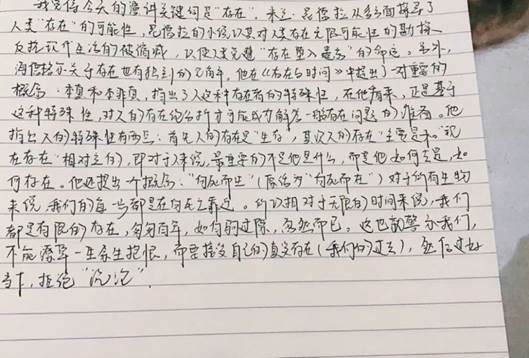 我觉得今天的演讲关键词是"存在"。米兰·昆德拉从多方面探寻了
人类"存在"的可能性，昆德拉的小说以其对人类存在无限可能性的勘探，
反抗现代生活的被缩减，以便人类免遭"存在堕入遗忘"的命运。另外，
海德格尔关于存在也有独到的见解，他在《存在与时间》中提出了一对重要的
概念：本真和非本真，指出了人这种存在者的特殊性，在他看来，正是基于
这种特殊性，对人的存在的分析才可成为解答一般存在问题的准备。他
指出人的特殊性有两点：首先人的存在是"生存"，其次人的存在
在存在"相对立的，即对于人来说，最重要的不是他是什么，而是他如何去是，如
何存在。他还提出一个概念："向死而生"（原话为"向死而在"）对于所有生物
来说，我们的每一步都是在向死亡靠近。所以相对于无限的时间来说，我们
都是有限的存在，匆匆百年，如白驹过隙，忽然而已，这也就警示我们，
不能庸碌一生余生抱恨，而要接受自己的真实存在（我们的过去），然后过好
当下，拒绝"沉沦"